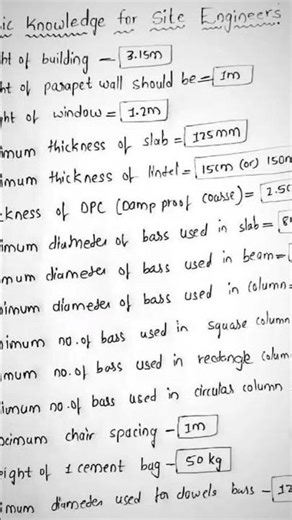 ic Knowledge for Site Engineers
ht of building – 3.15m
ht of parapet wall should be = 1m
ght of window = 1.2m
imum thickness of slab = 125mm
imum thickness of lintel = 15cm (or) 150m
ckness of DPC (Damp proof coarse) = 2.5c
imum diameter of bars used in slab = 8
mum diameter of bars used in beam =
nimum diameter of bars used in column =
nimum no. of bars used in square column
imum no. of bars used in rectangle colum
nimum no. of bars used in circular column
ximum chair spacing – 1m
eight of 1 cement bag – 50 kg
imum diameter used for dowels bars – 12